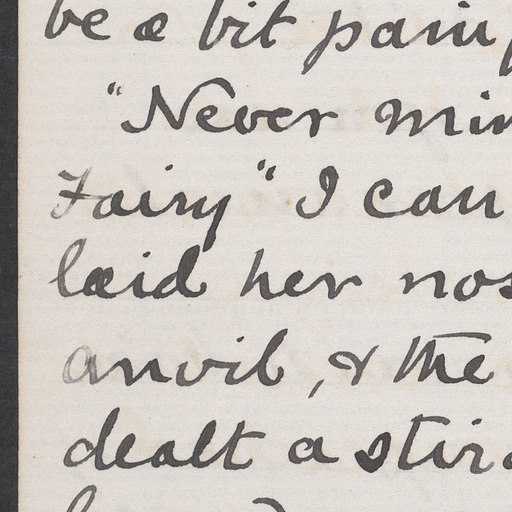 be a bit pain
"Never min
Fairy" I can
laid her nos
anvil, & the
dealt a stir